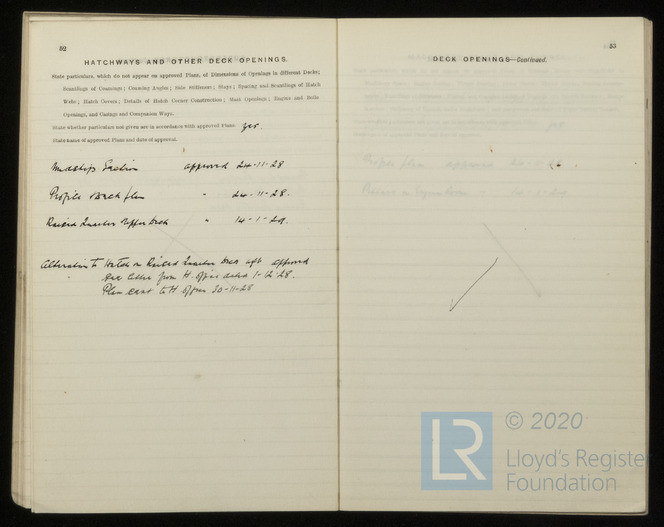 52
HATCHWAYS AND OTHER DECK OPENINGS.
State particulars, which do not appear on approved Plans, of Dimensions of Openings in different Decks;
Scantlings of Coamings; Coaming Angles; Side Stiffeners; Stays; Spacing and Scantlings of Hatch
Webs; Hatch Covers; Details of Hatch Corner Construction; Mast Openings; Engine and Boiler
Openings, and Casings and Companion Ways.
State whether particulars not given are in accordance with approved Plans. yes.
State name of approved Plans and date of approval.
Midships Section approved 24-11-28
Profile Deck plan " 24-11-28.
Raised Upper Deck " 14-1-29.
Alteration to Hatch in Raised Deck aft approved
See letter from H. Office dated 1-12-28.
Plan sent to H Office 30-11-28
33
DECK OPENINGS—Continued.
LR
© 2020
Lloyd's Register
Foundation